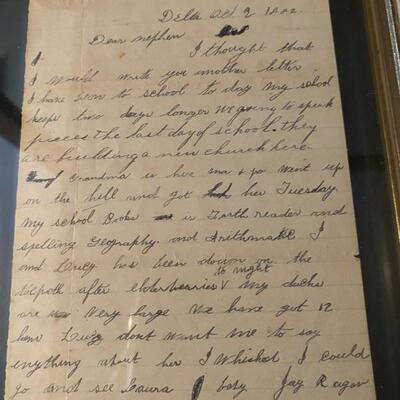 Delta Oct. 9 1882.
Dear nephew
I thought that
I would write you another letter
I have been to school to day My school
keeps two days longer We going to speak
pieces the last day of school. they
are building a new church here.
Grandma is here ma & pa went up
on the hill and got her Tuesday.
My school Books is Forth reader and
spelling Geography and Arithmatic I
and Lucy has been down on the
to night
towpath after elderberries & My ducks
are Very large We have got 12
hens Lucy dont want Me to say
enything about her I Whished I could
go and see Laura baby Jay Reagan